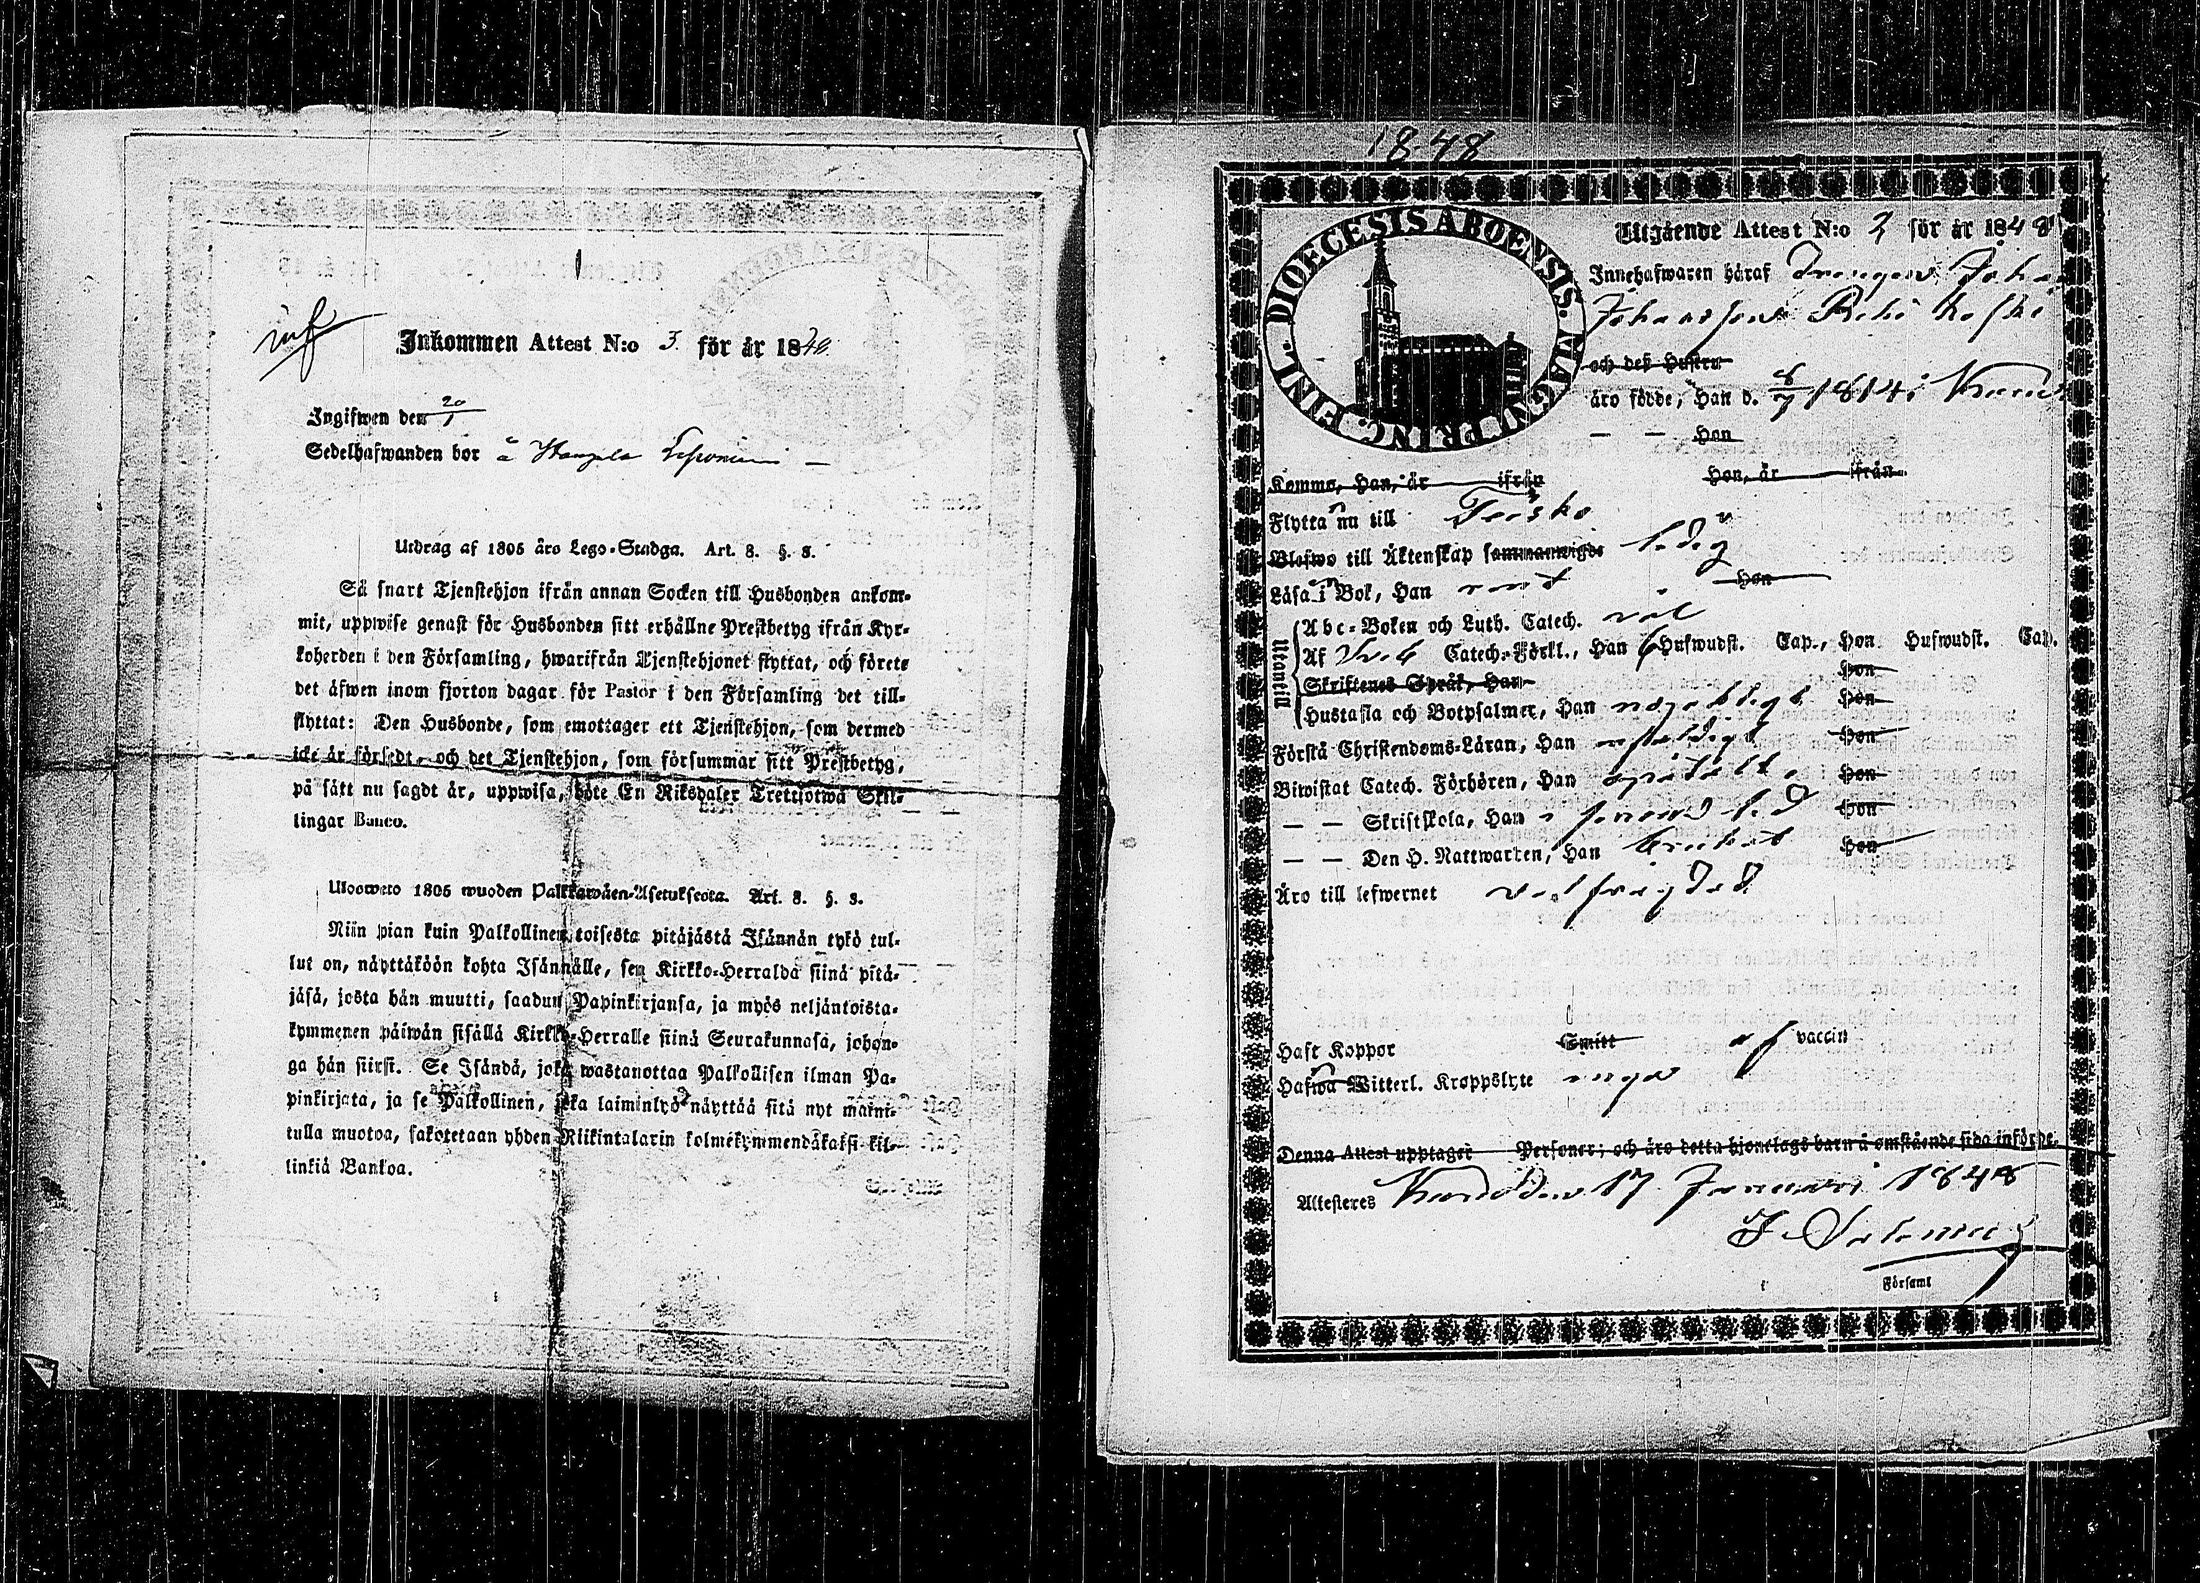 Inkommen Attest N:o 3. för år 1848.
Ingifwen den 20/1
Sedelhafwanden bor å
Utdrag af 1805 års Lego-Stadga. Art. 8. §. 8.
Så snart Tjenstehjon ifrån annan Socken till Husbonden ankom-
mit, uppwise genast för Husbonden sitt erhållne Prestbetyg ifrån Kyr-
koherden i den Församling, hwarifrån Tjenstehjonet flyttat, och förete
det äfwen inom fjorton dagar för Pastor i den Församling det till-
flyttat: Den Husbonde, som emottager ett Tjenstehjon, som dermed
icke är försedt, och det Tjenstehjon, som försummar sitt Prestbetyg,
på sätt nu sagdt är, uppwisa, böte En Riksdaler Trettiotwå Skil-
lingar Banco.
Ulosweto 1805 wuoden Palkkawäen-Asetuksesta. Art. 8. §. 8.
Niin pian kuin Palkollinen toisesta pitäjästä Isännän tykö tul-
lut on, näyttäköön kohta Isännälle, sen Kirkko-Herralda siinä pitä-
jäsä, josta hän muutti, saadun Papinkirjansa, ja myös neljäntoista-
kymmenen päiwän sisällä Kirkko-Herralle siinä Seurakunnasa, johon-
ga hän siirsi. Se Isändä, joka wastanottaa Palkollisen ilman Pa-
pinkirjata, ja se Palkollinen, joka laiminlyö näyttää sitä nyt maini-
tulla muotoa, sakotetaan yhden Riikintalarin kolmekymmendäkaksi kil-
linkiä Bankoa.
1848
DIOECESIS ABOENSIS. MAGNI PRINC. FINL.
Utgående Attest N:o 3 för år 1848
Innehafwaren häraf Drengen Joha
Johansson
och deß Hustru
äro födde, Han d. 1814 i
— — Hon
Komme, Han, är ifrån Hon, är ifrån
Flytta nu till Teisko
Blefwo till Äktenskap sammanwigde ledig
Läsa i Bok, Han rent Hon
Utantill
Abc-Boken och Luth. Catech. väl
Af Sveb. Catech.-Förkl., Han 6 Hufwudst. Cap., Hon Hufwudst. Cap.
Skriftenes Språk, Han Hon
Hustafla och Botpsalmer, Han nöjaktigt Hon
Förstå Christendoms-Läran, Han Hon
Biwistat Catech. Förhören, Han Hon
— — Skriftskola, Han Hon
— — Den H. Nattwarden, Han brukat Hon
Äro till lefwernet välfrejdad
Haft Koppor Smitt af vaccin
Hafwa Witterl. Kroppslyte inga
Denna Attest upptager Personer; och äro detta hjonelags barn å omstående sida införde.
Attesteres den 17 Januari 1848
Församl